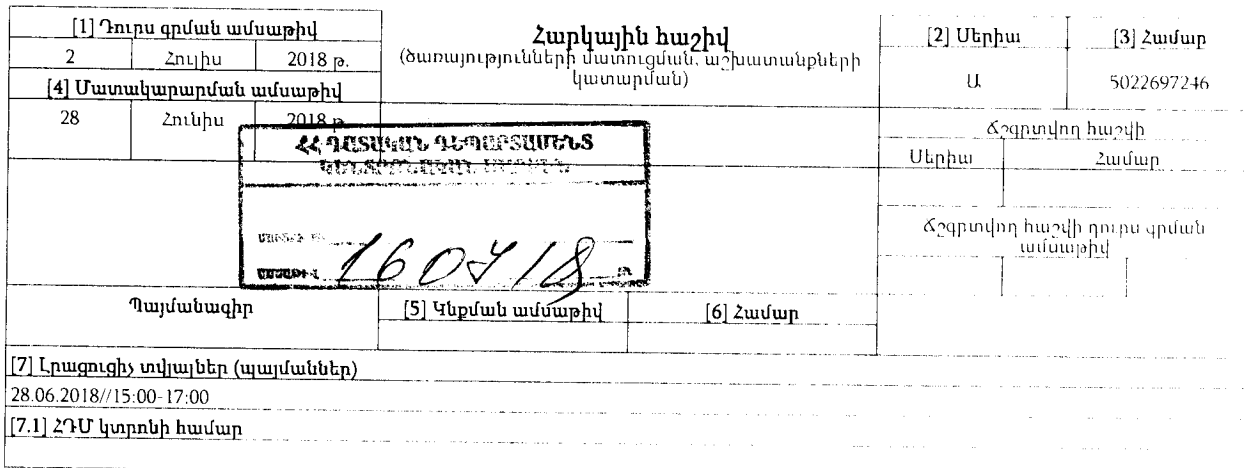 [1] Դուրս գրման ամսաթիվ
2 Հուլիս 2018 թ.
[4] Մատակարարման ամսաթիվ
28 Հունիս 2018 թ.
Հարկային հաշիվ
(ծառայությունների մատուցման, աշխատանքների
կատարման)
[2] Սերիա [3] Համար
Ա 5022697246
Ճշգրտվող հաշվի
Սերիա Համար
Ճշգրտվող հաշվի դուրս գրման
ամսաթիվ
ՀՀ ԴԱՏԱԿԱՆ ԴԵՊԱՐՏԱՄԵՆՏ
ԿԵՆՏՐՈՆԱԿԱՆ ՄԱՐՄԻՆ
ՄՏՆՈՂ
ԱՄՍԱԹԻՎ 160718 թ.
Պայմանագիր [5] Կնքման ամսաթիվ [6] Համար
[7] Լրացուցիչ տվյալներ (պայմաններ)
28.06.2018//15:00-17:00
[7.1] ՀԴՄ կտրոնի համար